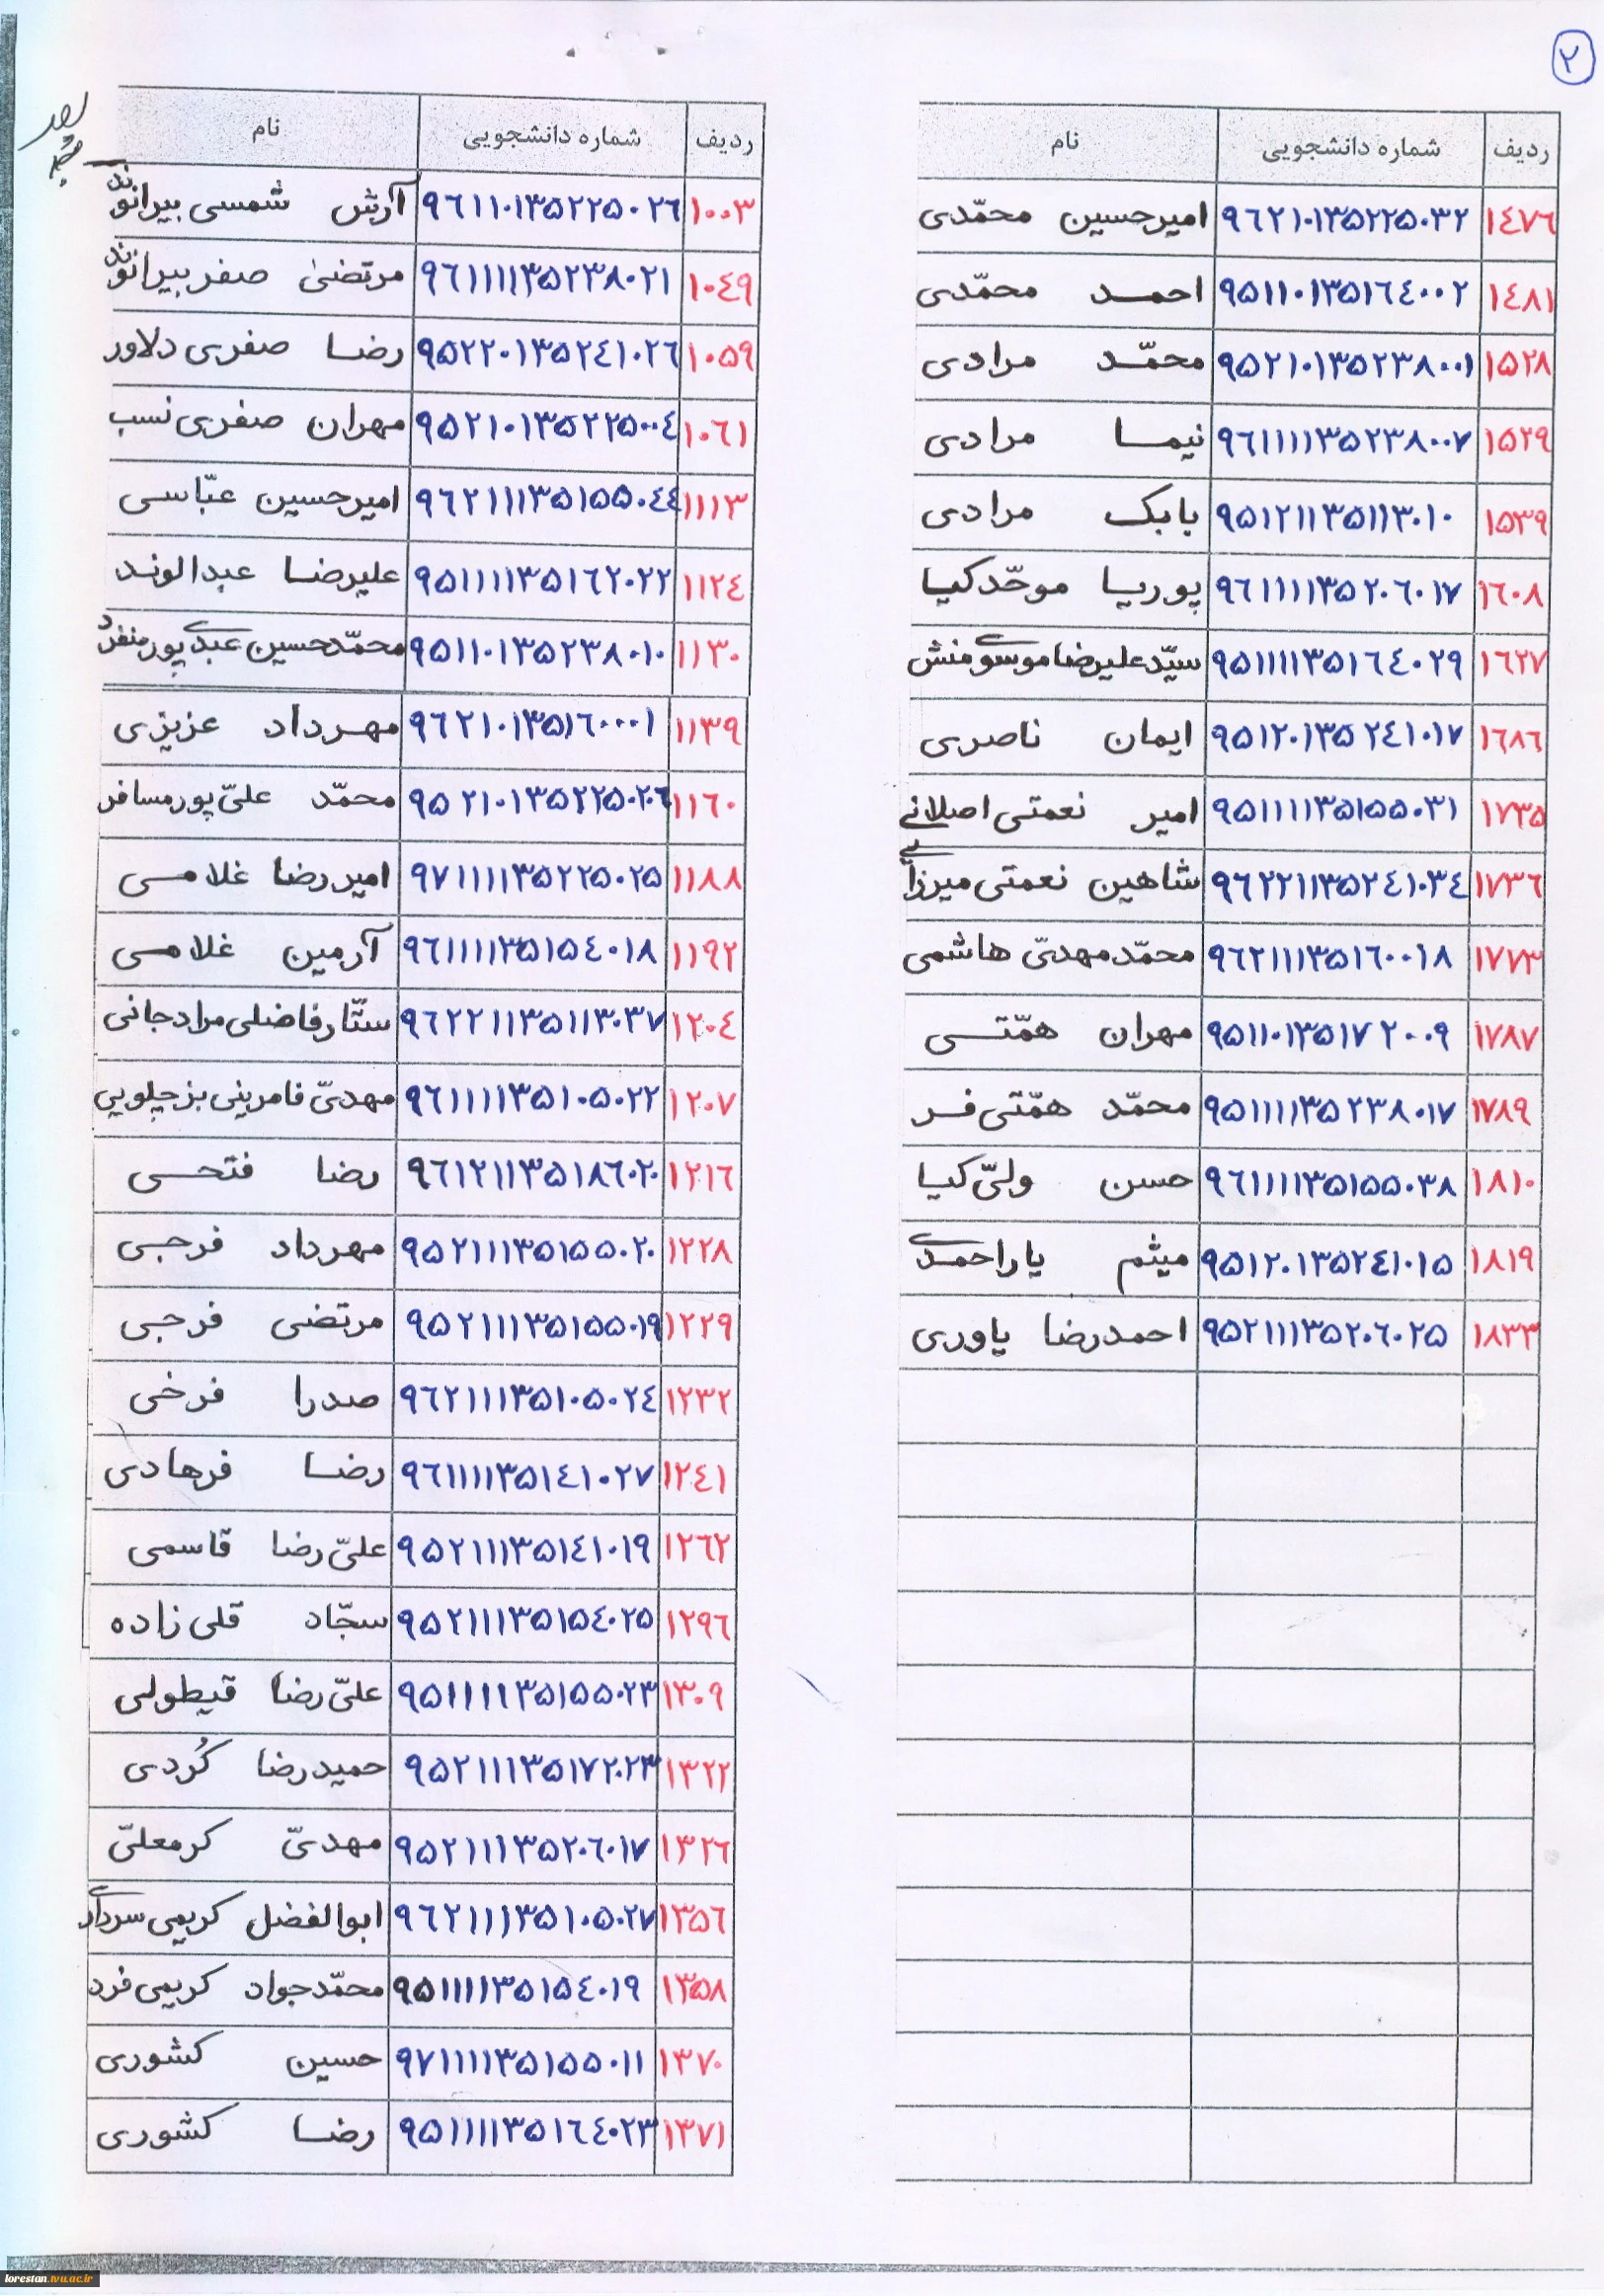 ۲
ردیف شماره دانشجویی نام
۱۴۷۶ ۹۶۲۱۰۱۳۵۲۲۵۰۳۲ امیرحسین محمّدی
۱۴۸۱ ۹۵۱۱۰۱۳۵۱۶۴۰۰۲ احمد محمّدی
۱۵۲۸ ۹۵۲۱۰۱۳۵۲۳۸۰۰۱ محمّد مرادی
۱۵۲۹ ۹۶۱۱۱۱۳۵۲۳۸۰۰۷ نیما مرادی
۱۵۳۹ ۹۵۱۲۱۱۳۵۱۱۳۰۱۰ بابک مرادی
۱۶۰۸ ۹۶۱۱۱۱۳۵۲۰۶۰۱۷ پوریا موحّدکیا
۱۶۲۷ ۹۵۱۱۱۱۳۵۱۶۴۰۲۹ سیّدعلیرضا موسوی منش
۱۶۸۶ ۹۵۱۲۰۱۳۵۲۴۱۰۱۷ ایمان ناصری
۱۷۳۵ ۹۵۱۱۱۱۳۵۱۵۵۰۳۱ امیر نعمتی اصلانی
۱۷۳۶ ۹۶۲۲۱۱۳۵۲۴۱۰۳۴ شاهین نعمتی میرزایی
۱۷۷۳ ۹۶۲۱۱۱۳۵۱۶۰۰۱۸ محمّدمهدیّ هاشمی
۱۷۸۷ ۹۵۱۱۰۱۳۵۱۷۲۰۰۹ مهران همّتی
۱۷۸۹ ۹۵۱۱۱۱۳۵۲۳۸۰۱۷ محمّد همّتی فر
۱۸۱۰ ۹۶۱۱۱۱۳۵۱۵۵۰۳۸ حسن ولیّ کیا
۱۸۱۹ ۹۵۱۲۰۱۳۵۲۴۱۰۱۵ میثم یاراحمدی
۱۸۳۳ ۹۵۲۱۱۱۳۵۲۰۶۰۲۵ احمدرضا یاوری
ردیف شماره دانشجویی نام
۱۰۰۳ ۹۶۱۱۰۱۳۵۲۲۵۰۲۶ آرش شمسی بیرانوند
۱۰۴۹ ۹۶۱۱۱۱۳۵۲۳۸۰۲۱ مرتضیٰ صفر بیرانوند
۱۰۵۹ ۹۵۲۲۰۱۳۵۲۴۱۰۲۶ رضا صفری دلاور
۱۰۶۱ ۹۵۲۱۰۱۳۵۲۲۵۰۰۴ مهران صفری نسب
۱۱۱۳ ۹۶۲۱۱۱۳۵۱۵۵۰۴۴ امیرحسین عبّاسی
۱۱۲۴ ۹۵۱۱۱۱۳۵۱۶۲۰۲۲ علیرضا عبدالوند
۱۱۳۰ ۹۵۱۱۰۱۳۵۲۳۸۰۱۰ محمّدحسین عبدی پور منفرد
۱۱۳۹ ۹۶۲۱۰۱۳۵۱۶۰۰۰۱ مهرداد عزیزی
۱۱۶۰ ۹۵۲۱۰۱۳۵۲۲۵۰۲۰۶ محمّد علیّ پور مسافر
۱۱۸۸ ۹۷۱۱۱۱۳۵۲۲۵۰۲۵ امیررضا غلامی
۱۱۹۲ ۹۶۱۱۱۱۳۵۱۵۴۰۱۸ آرمین غلامی
۱۲۰۴ ۹۶۲۲۱۱۳۵۱۱۳۰۳۷ ستّار فاضلی مرادجانی
۱۲۰۷ ۹۶۱۱۱۱۳۵۱۰۵۰۲۲ مهدیّ فامرینی بزچلویی
۱۲۱۶ ۹۶۱۲۱۱۳۵۱۸۶۰۲۰ رضا فتحی
۱۲۲۸ ۹۵۲۱۱۱۳۵۱۵۵۰۲۰ مهرداد فرجی
۱۲۲۹ ۹۵۲۱۱۱۳۵۱۵۵۰۱۹ مرتضی فرجی
۱۲۳۲ ۹۶۲۱۱۱۳۵۱۰۵۰۲۴ صدرا فرخی
۱۲۴۱ ۹۶۱۱۱۱۳۵۱۴۱۰۲۷ رضا فرهادی
۱۲۶۲ ۹۵۲۱۱۱۳۵۱۴۱۰۱۹ علیّ رضا قاسمی
۱۲۹۶ ۹۵۲۱۱۱۳۵۱۵۴۰۲۵ سجّاد قلی زاده
۱۳۰۹ ۹۵۱۱۱۱۳۵۱۵۵۰۲۳ علیّ رضا قیطولی
۱۳۲۲ ۹۵۲۱۱۱۳۵۱۷۲۰۲۳ حمیدرضا کُردی
۱۳۲۶ ۹۵۲۱۱۱۳۵۲۰۶۰۱۷ مهدیّ کرمعلیّ
۱۳۵۶ ۹۶۲۱۱۱۳۵۱۰۵۰۲۷ ابوالفضل کریمی سرداری
۱۳۵۸ ۹۵۱۱۱۱۳۵۱۵۴۰۱۹ محمّدجواد کریمی فرد
۱۳۷۰ ۹۷۱۱۱۱۳۵۱۵۵۰۱۱ حسین کشوری
۱۳۷۱ ۹۵۱۱۱۱۳۵۱۶۴۰۲۳ رضا کشوری
lorestan.tvu.ac.ir